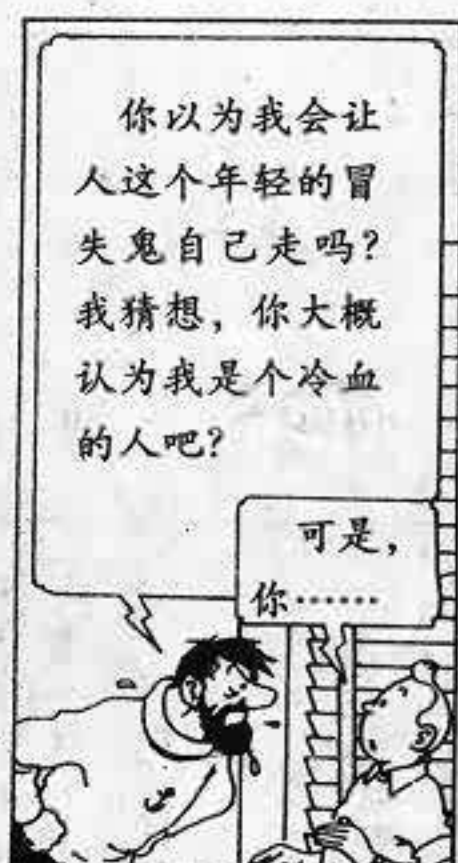 你以为我会让
人这个年轻的冒
失鬼自己走吗？
我猜想，你大概
认为我是个冷血
的人吧？
可是，
你……